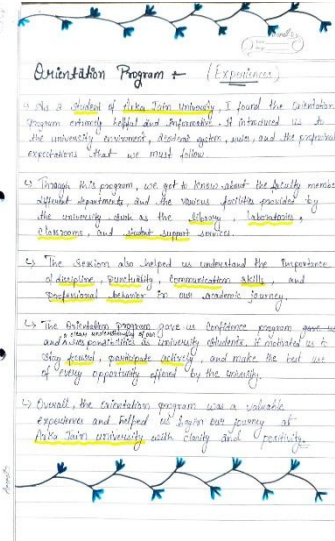 Orientation Program (Experiences)
As a student of Arka Jain University, I found the Orientation
program extremely helpful and informative. It introduced us to
the university enviroment, academic system, rules, and the professional
expectations that we must follow.
Through this program, we got to know about the faculty members
different departments, and the various facilities provided by
the university such as the library, laboratories,
classrooms, and student support services.
The session also helped us understand the importance
of discipline, punctuality, communication skills, and
professional behavior in our academic journey.
The Orientation program gave us confidence program gave us
a clear understanding of our
and responsibilities as university students. it motivated us to
stay focused, participate actively, and make the best use
of every opportunity offered by the university.
Overall, the orientation program was a valuable
experience and helped us begin our journey at
Arka Jain university with clarity and positivity.